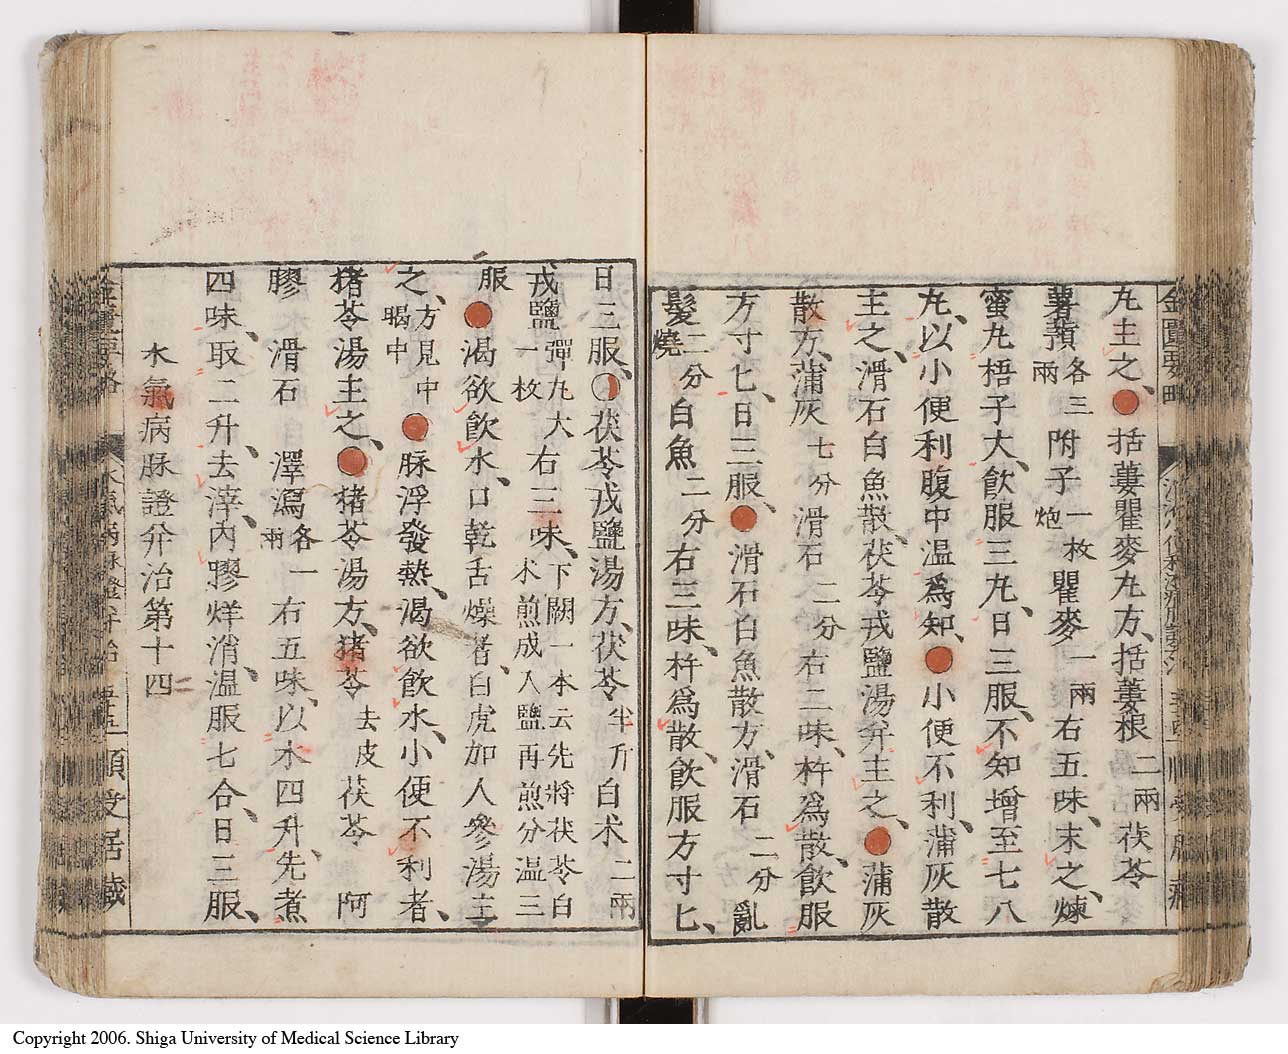 金匱要略
丸主之、括蔞瞿麥丸方、括蔞根二兩茯苓
薯蕷各三兩附子一枚炮瞿麥一兩右五味、末之、煉
蜜丸梧子大、飮服三丸、日三服、不知增至七八
丸、以小便利腹中温爲知、小便不利、蒲灰散
主之、滑石白魚散、茯苓戎鹽湯弁主之、蒲灰
散方、蒲灰七分滑石二分右二味、杵爲散、飮服
方寸匕、日三服、滑石白魚散方、滑石二分亂
髮二分燒白魚二分右三味、杵爲散、飮服方寸匕、
日三服、茯苓戎鹽湯方、茯苓半斤白朮二兩
戎鹽彈丸大一枚右三味、下闕一本云先將茯苓白朮煎成入鹽再煎分温三
服渴欲飮水、口乾舌燥者、白虎加人參湯主
之、方見中暍中脉浮發熱、渴欲飮水、小便不利者、
猪苓湯主之、猪苓湯方、猪苓去皮茯苓阿
膠滑石澤瀉各一兩右五味、以水四升、先煮
四味、取二升、去滓、内膠烊消、温服七合、日三服、
水氣病脉證弁治第十四
水氣病脉證弁治